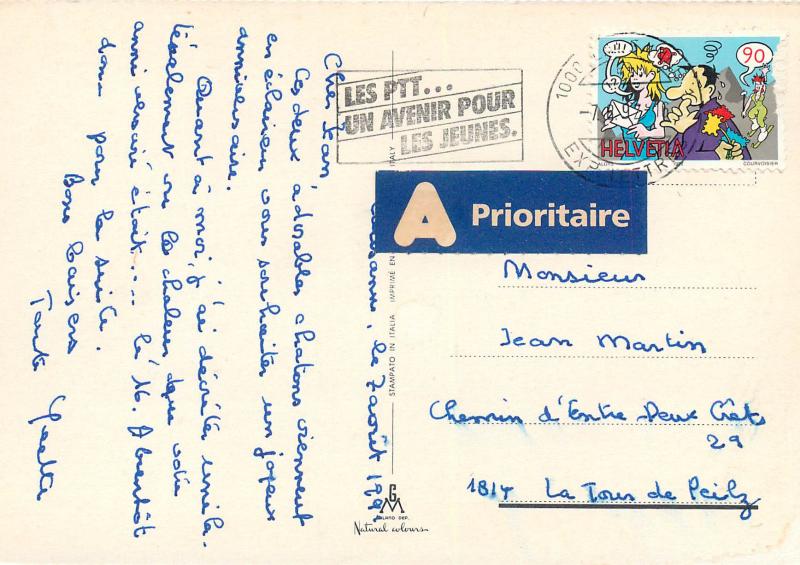 Lausanne, le 7 août 199
Cher Jean,
Ces deux adorables chatons viennent
en éclaireur vous souhaiter un joyeux
anniversaire.
Quant à moi, j'ai décrété unila-
téralement vu la chaleur que votre
anniversaire était... le 16. A bientôt
donc pour la suite.
Bons baisers
Tante
LES PTT...
UN AVENIR POUR
LES JEUNES.
1000
90
HELVETIA
COURVOISIER
A Prioritaire
Monsieur
Jean Martin
Chemin d'Entre-Deux-Crêts
29
1814 La Tour de Peilz
STAMPATO IN ITALIA IMPRIMÉ EN ITALY
GM
MILANO DEP.
Natural colours